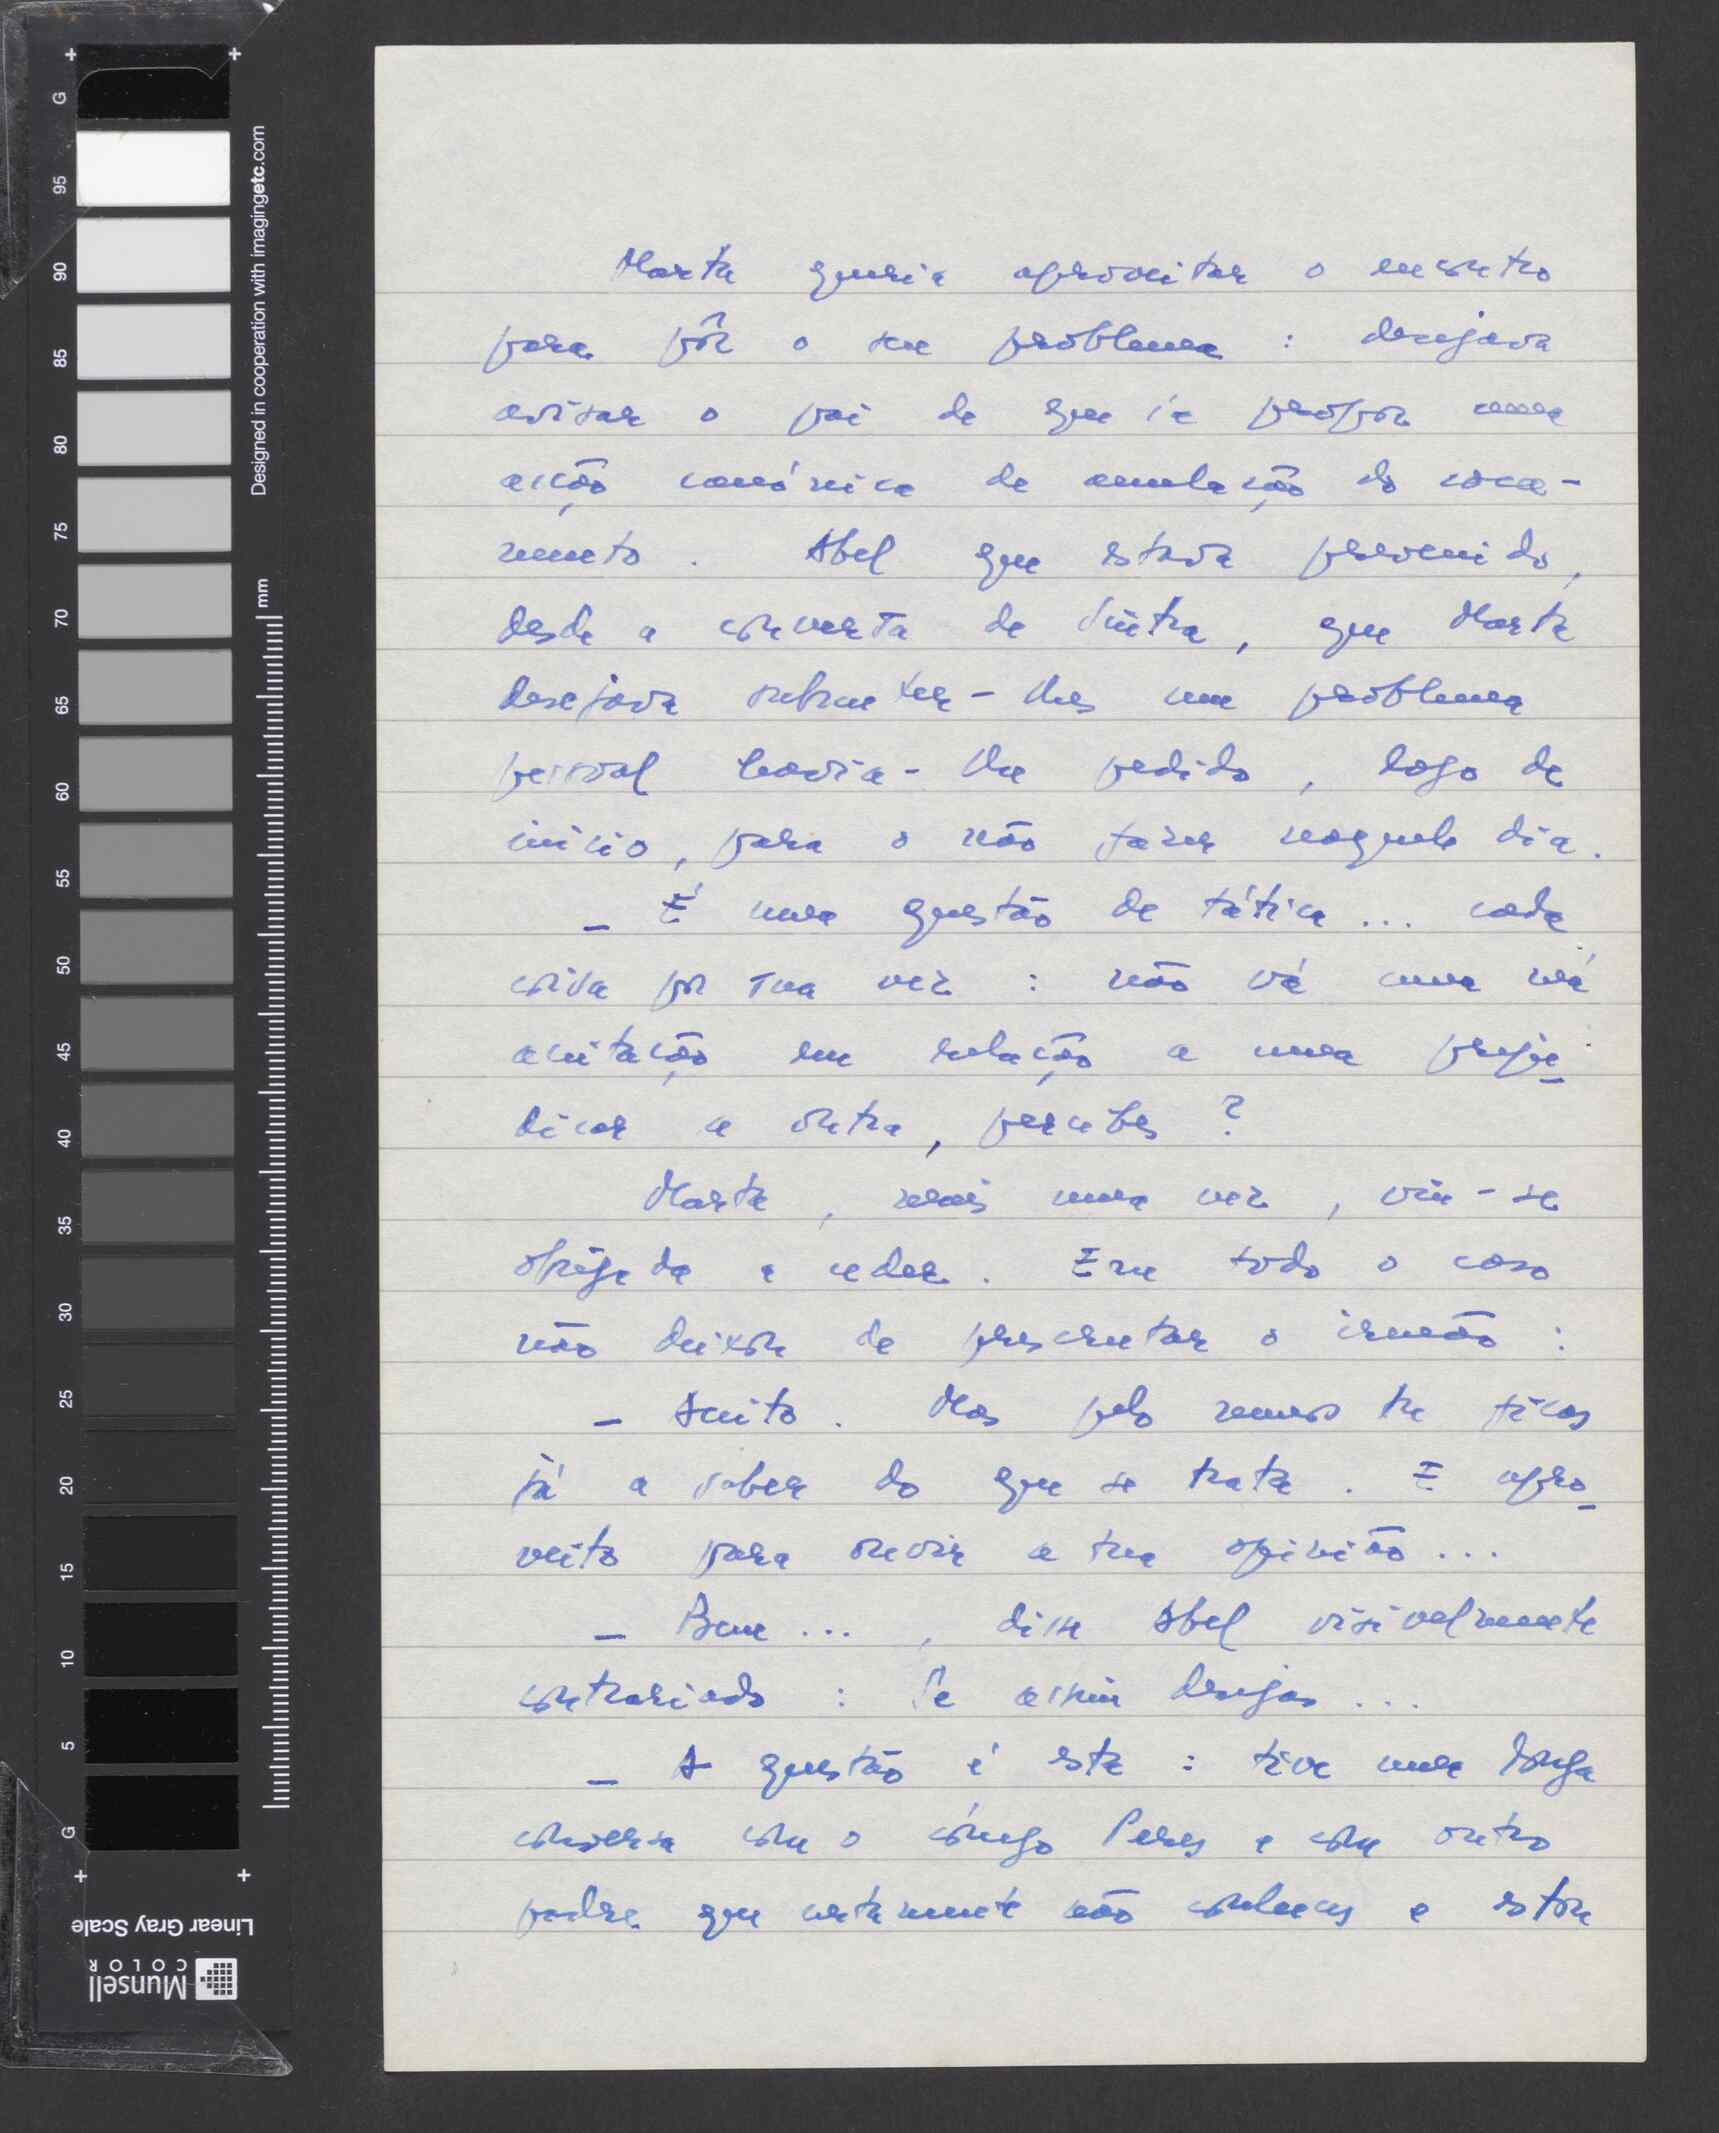 Marta queria aproveitar o encontro
para pôr o seu problema : desejava
avisar o pai de que ia propor uma
acção canónica de anulação do casa-
mento . Abel que estava prevenido,
desde a conversa de Sintra, que Marta
desejava submeter-lhes um problema
pessoal havia-lhe pedido, logo de
início, para o não fazer naquele dia.
- É uma questão de tática... cada
coisa por sua vez : não vá uma má
aceitação em relação a uma preju-
dicar a outra, percebes ?
Marta, mais uma vez, viu-se
obrigada a ceder. Em todo o caso
não deixou de prescrutar o irmão :
- Aceito. Mas pelo menos tu ficas
já a saber do que se trata. E apro-
veito para ouvir a tua opinião...
- Bem..., disse Abel visivelmente
contrariado : Se assim desejas...
- A questão é esta : tive uma longa
conversa com o cónego Peres e com outro
padre que certamente não conheces e estou
G
95
90
85
80
75
70
65
60
55
50
45
40
35
30
25
20
15
10
5
G
Designed in cooperation with imagingetc.com
mm
Linear Gray Scale
Munsell
COLOR